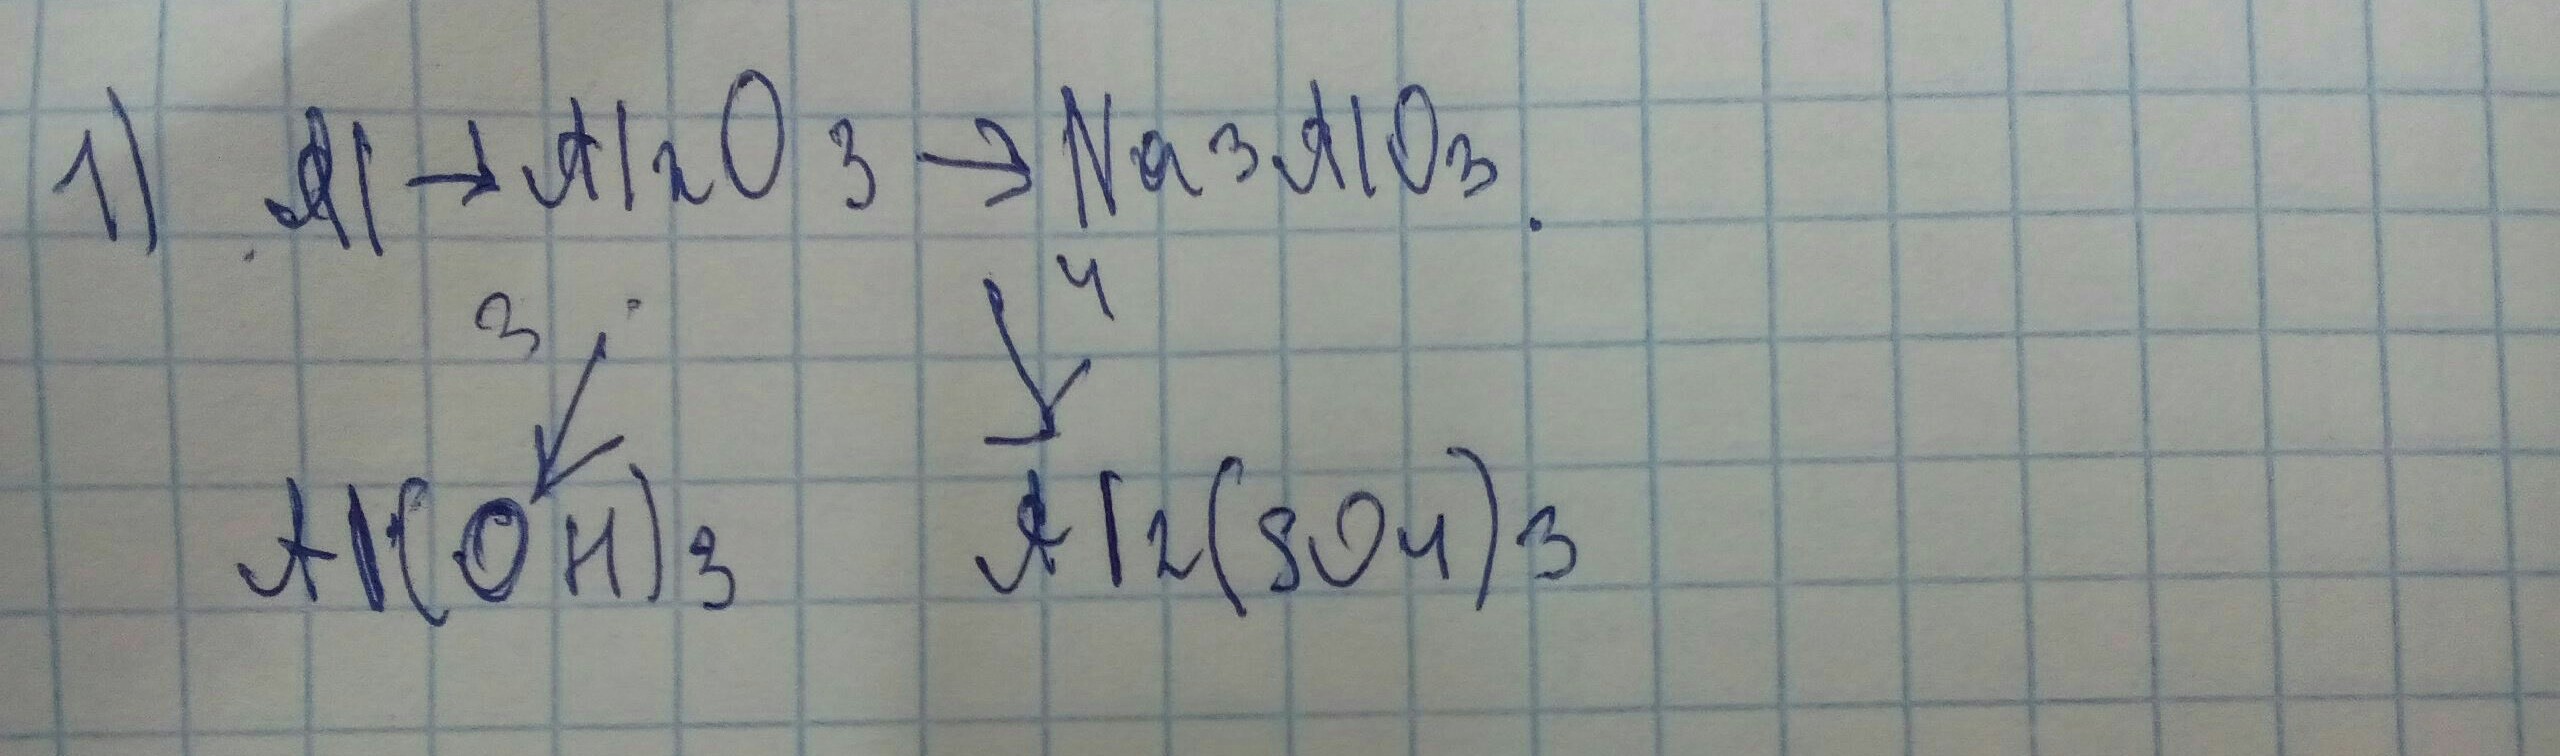 1) Al → Al2O3 → Na3AlO3.
3 4
Al(OH)3 Al2(SO4)3